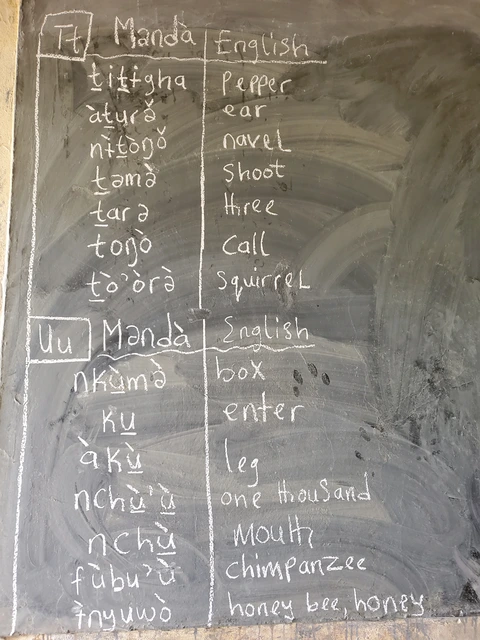 Tt Məndà English
t̲it̲ɨgha Pepper
àt̲urə̌ ear
nɨ̀t̲oŋǒ navel
t̲əmə̀ Shoot
t̲arə three
toŋò Call
t̲ò'òrə̀ Squirrel
Uu Məndà English
nkù̲mə̀ box
ku̲ enter
àkù̲ leg
nchù̲'ù̲ one thousand
nchù̲ Mouth
fù̲bu'ù̲ chimpanzee
ɨnyuwò honey bee, honey